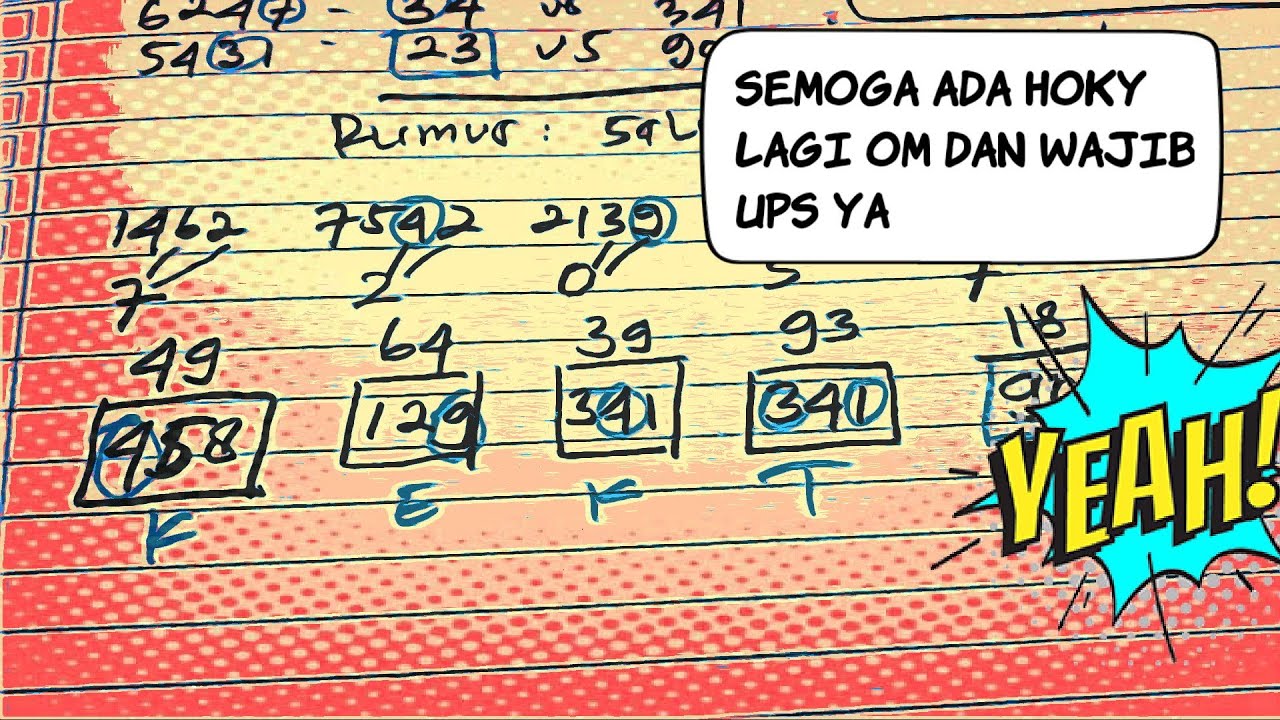 6247 - 34 vs 341
5431 - 23 vs
SEMOGA ADA HOKY
LAGI OM DAN WAJIB
UPS YA
Rumus :
1462 7542 2139
7 2 0 5 7
49 64 39 93 18
458 129 341 341
K E K T
YEAH!